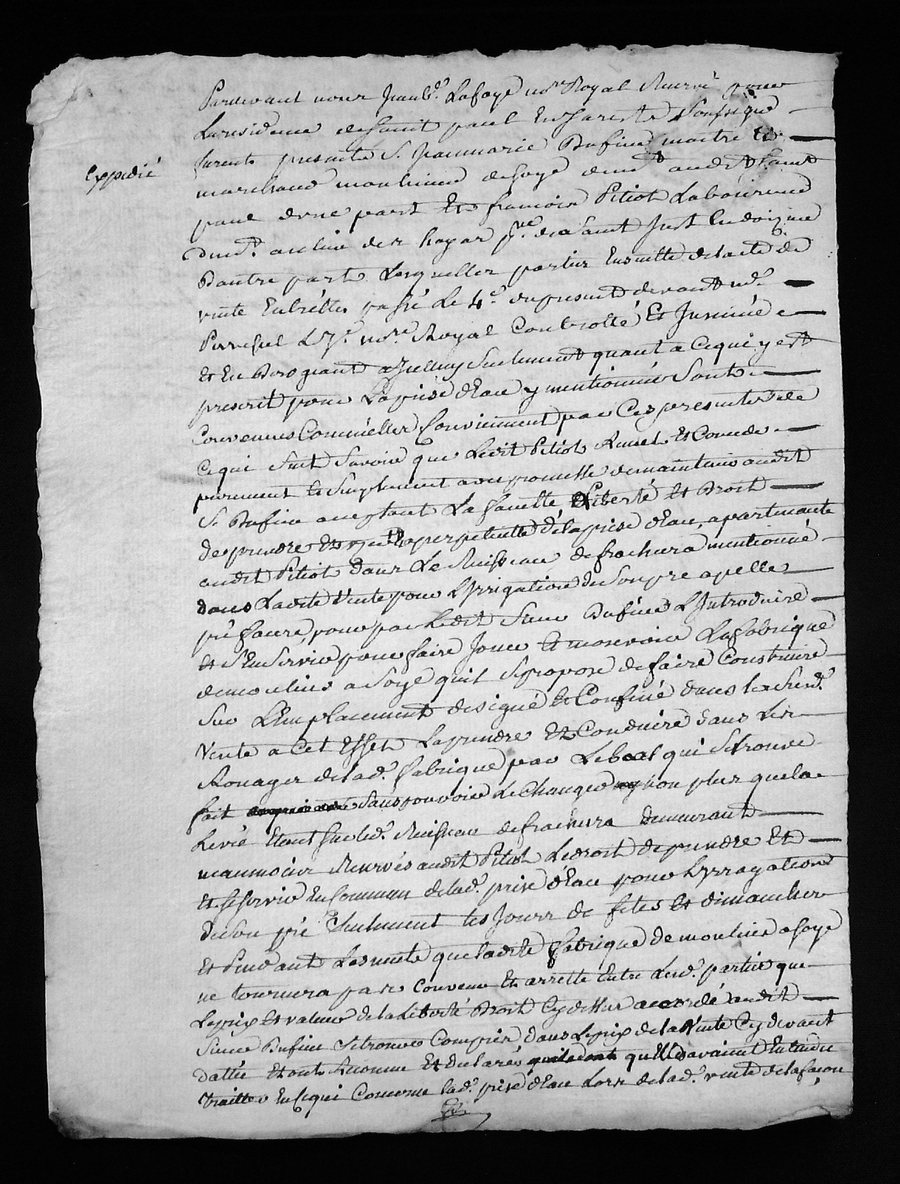 Pardevant nous Jean Bte. Lafaye nore. Royal Reservé pour
La residence de saint paul En Jarest Soussigné
furent presents Sr. Jean marie Dufieu maitre Et
Expedié
marchand moulinier de soye demt. audit Saint
paul d'une part Et françois Pitiot Laboureur
demt. au lieu des hayes psse. de Saint Just En doizieu
D'autre part Lesquelles parties Ensuitte de l'acte de
vente Entr'elles passé le 4e. du present devant Me.
nore. Royal Controllé Et Insinué
Et En Derogeant a Jcelluy Seulement quant a Ce qui y est
prescrit pour La prise d'Eau y mentionnée Sont
Convenues Comm'elles Conviennent par Ces presentes de
Ce qui Suit Savoir que Ledit Pitiot Remet Et Concede
purement Et Simplement avec promesse de maintenir audit
Sr. Dufieu acceptant La faculté Liberté Et Droit
de prendre Et a perpetuité de la prise d'Eau apartenante
audit Pitiot dans Le Ruisseau de frachura mentionné
dans Ladite Vente pour L'irrigation du Son pre apellé
pré faure, pour par Ledit Sieur Dufieu L'Introduire
et S'En Servir pour faire Jouer Et mouvoir La fabrique
de moulins a Soye qu'il Se propose de faire Construire
Sur L'Emplacement designé Et Confiné dans la Susde.
Vente a Cet Effet La prendre Et Conduire dans Les
Rouages de lade. fabrique par Le beal qui Se trouve
fait Sans pouvoir Le Changer non plus que la
Levée Etant sur led. Ruisseau de frachura demeurant
neanmoins Reservés audit Pitiot Le droit de prendre Et
Et se servir En Commun de lade. prise d'Eau pour L'yrragation
du Son pré Seulement les Jours de fetes Et dimanches
Et pendant Les nuits que ladite fabrique de moulins a soye
ne tournera pas Convenu Et arretté Entre Lesd. parties que
Le prix Et valeur de la Liberté Droit Cy dessus accordé audit
Sieur Dufieu Se trouve Compris dans Le prix de la Vente Cy devant
dattée Et ont Reconnu Et declaré qu'Elles avoient Entendu
traitter En Ce qui Concerne lade. prise d'Eau Lors de lade. vente de la façon